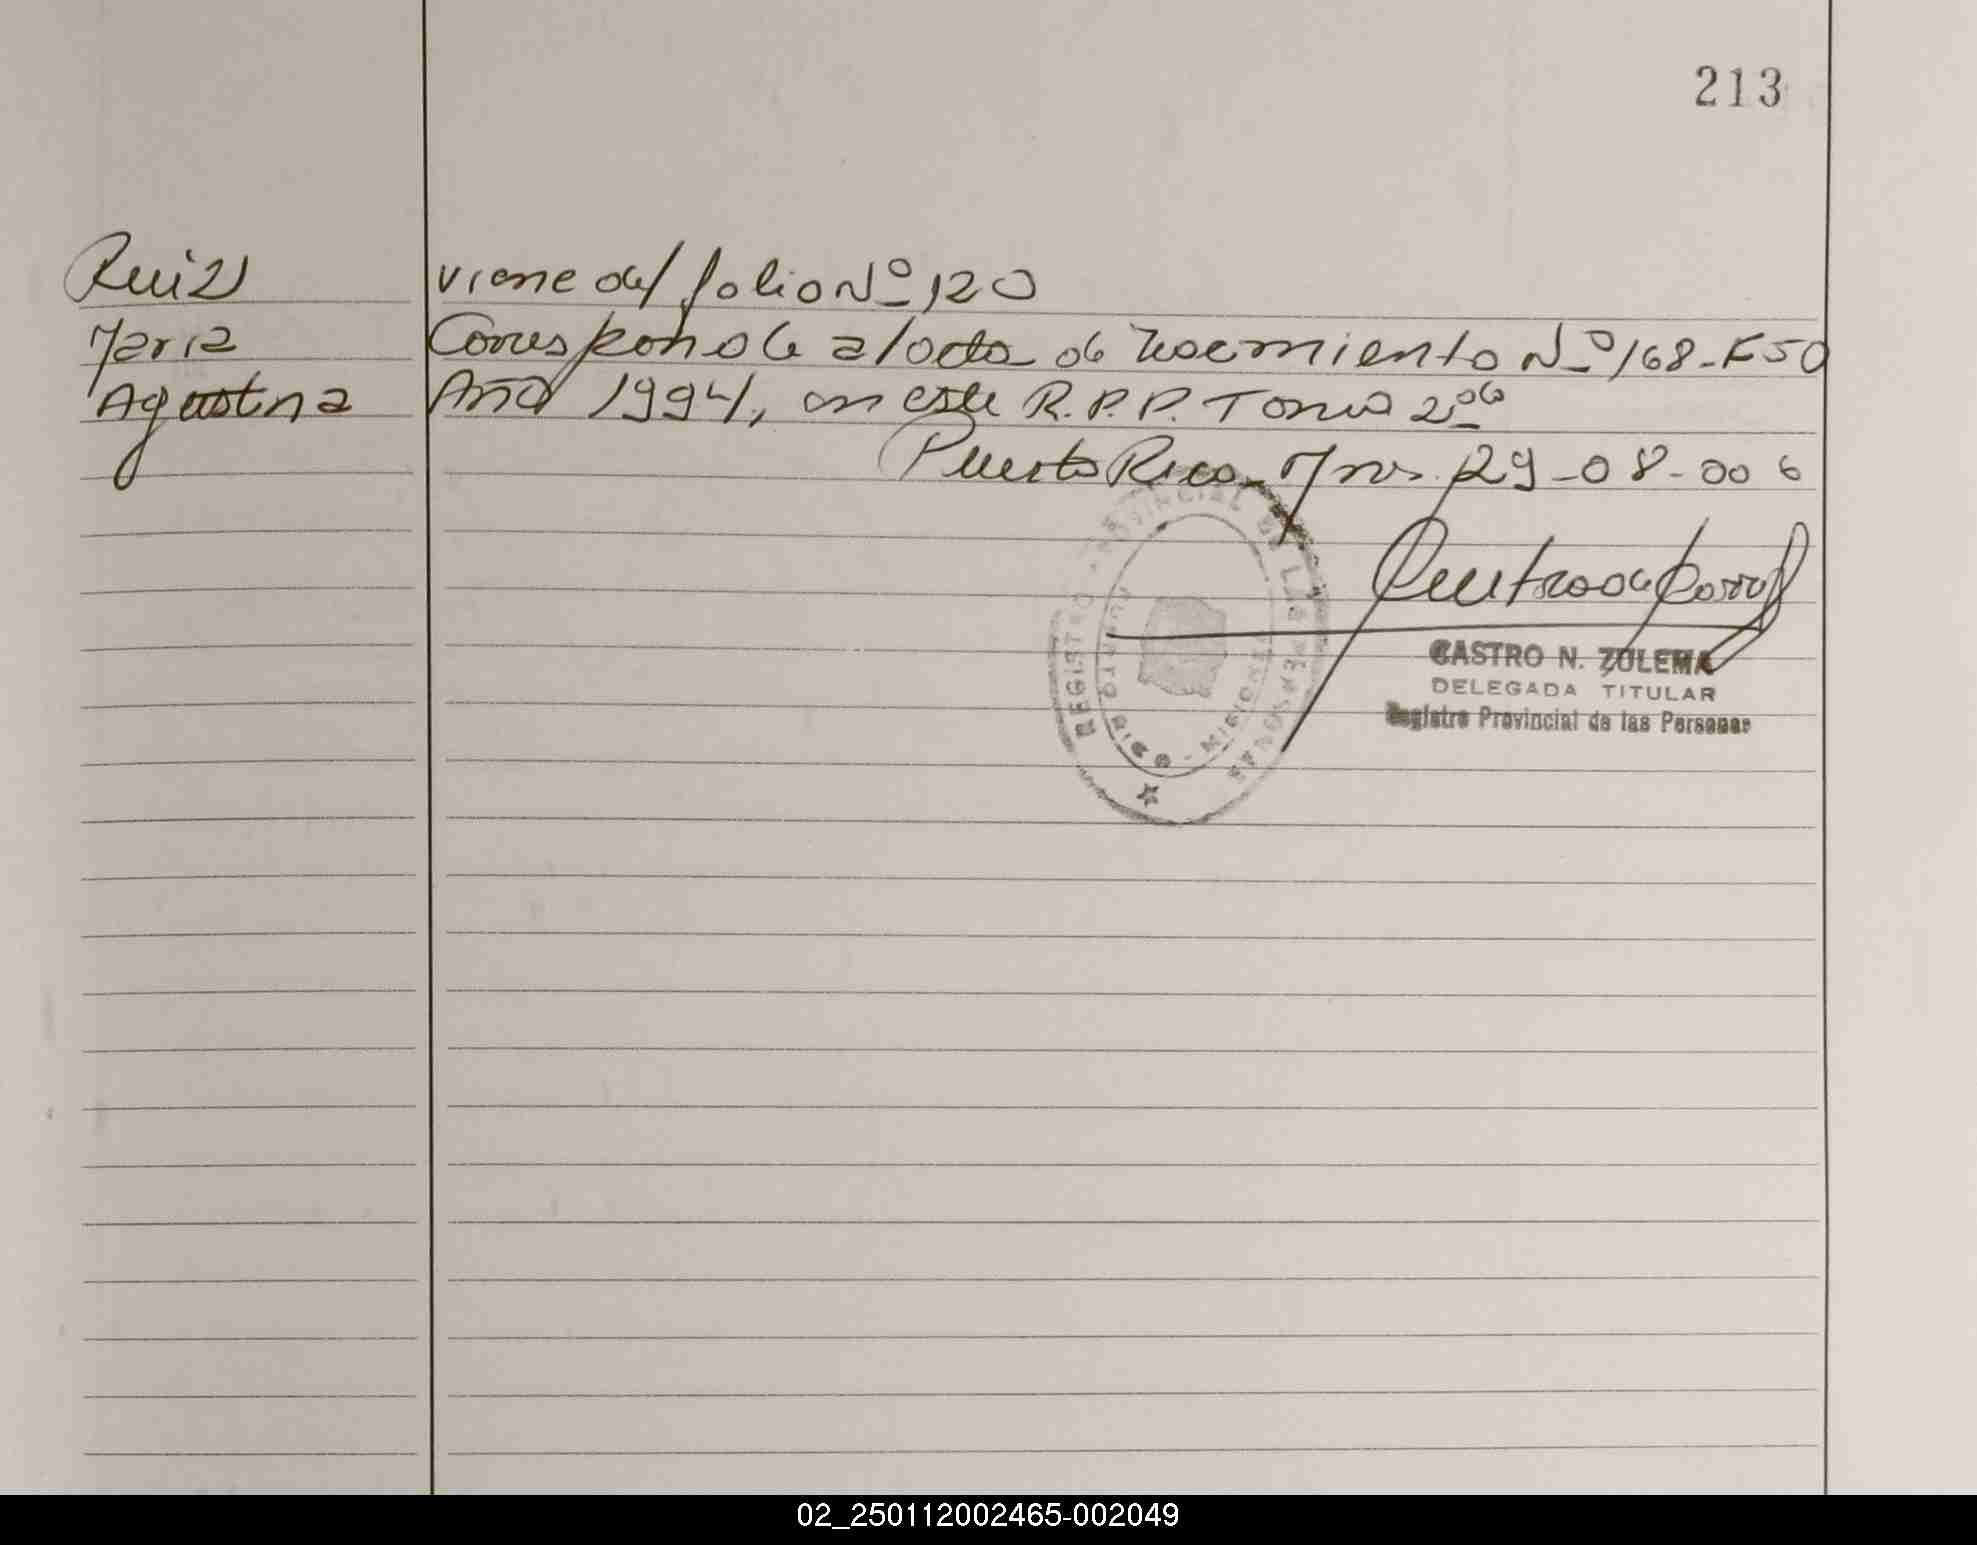 213
Ruiz viene del folio Nº 120
Maria Corresponde al acta de Nacimiento Nº 168-F50
Agustina Año 1994, en este R.P.P. Tomo 2do
Puerto Rico, Mnes. 29-08-006
REGISTRO PROVINCIAL DE LAS PERSONAS
PUERTO RICO - MISIONES
CASTRO N. ZULEMA
DELEGADA TITULAR
Registro Provincial de las Personas
02_250112002465-002049